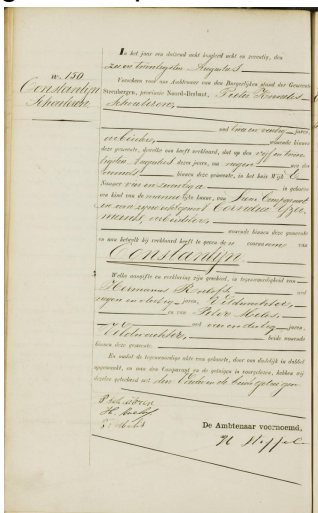 No. 150
Constantijn
Schouteren.
In het jaar een duizend acht honderd acht en zeventig, den
zes en twintigsten Augustus
Verscheen voor ons Ambtenaar van den Burgerlijken stand der Gemeente
Steenbergen, provincie Noord-Brabant, Pieter Cornelis
Schouteren,
oud twee en veertig jaren,
arbeider, wonende binnen
deze gemeente, dewelke ons heeft verklaard, dat op den vijf en twin-
tigsten Augustus dezes jaars, om negen ure des
binnen deze gemeente, in het huis Wijk C
Nummer vier en zeventig a is geboren
een kind van de mannelijke kunne, van hem Comparant
en van zijne echtgenoot Cornelia
arbeidster,
wonende binnen deze gemeente
en aan hetwelk hij verklaard heeft te geven de voornaam van
Constantijn.
Welke aangifte en verklaring zijn geschied, in tegenwoordigheid van
Hermanus oud
negen en veertig jaren, Veldwachter,
en van Peter
oud jaren,
Veldwachter, beide wonende
binnen deze gemeente.
En nadat de tegenwoordige akte van geboorte, door ons dadelijk in dubbel
opgemaakt, en aan den Comparant en de getuigen is voorgelezen, hebben wij
dezelve geteekend met den Vader en de beide getuigen.
De Ambtenaar voornoemd,